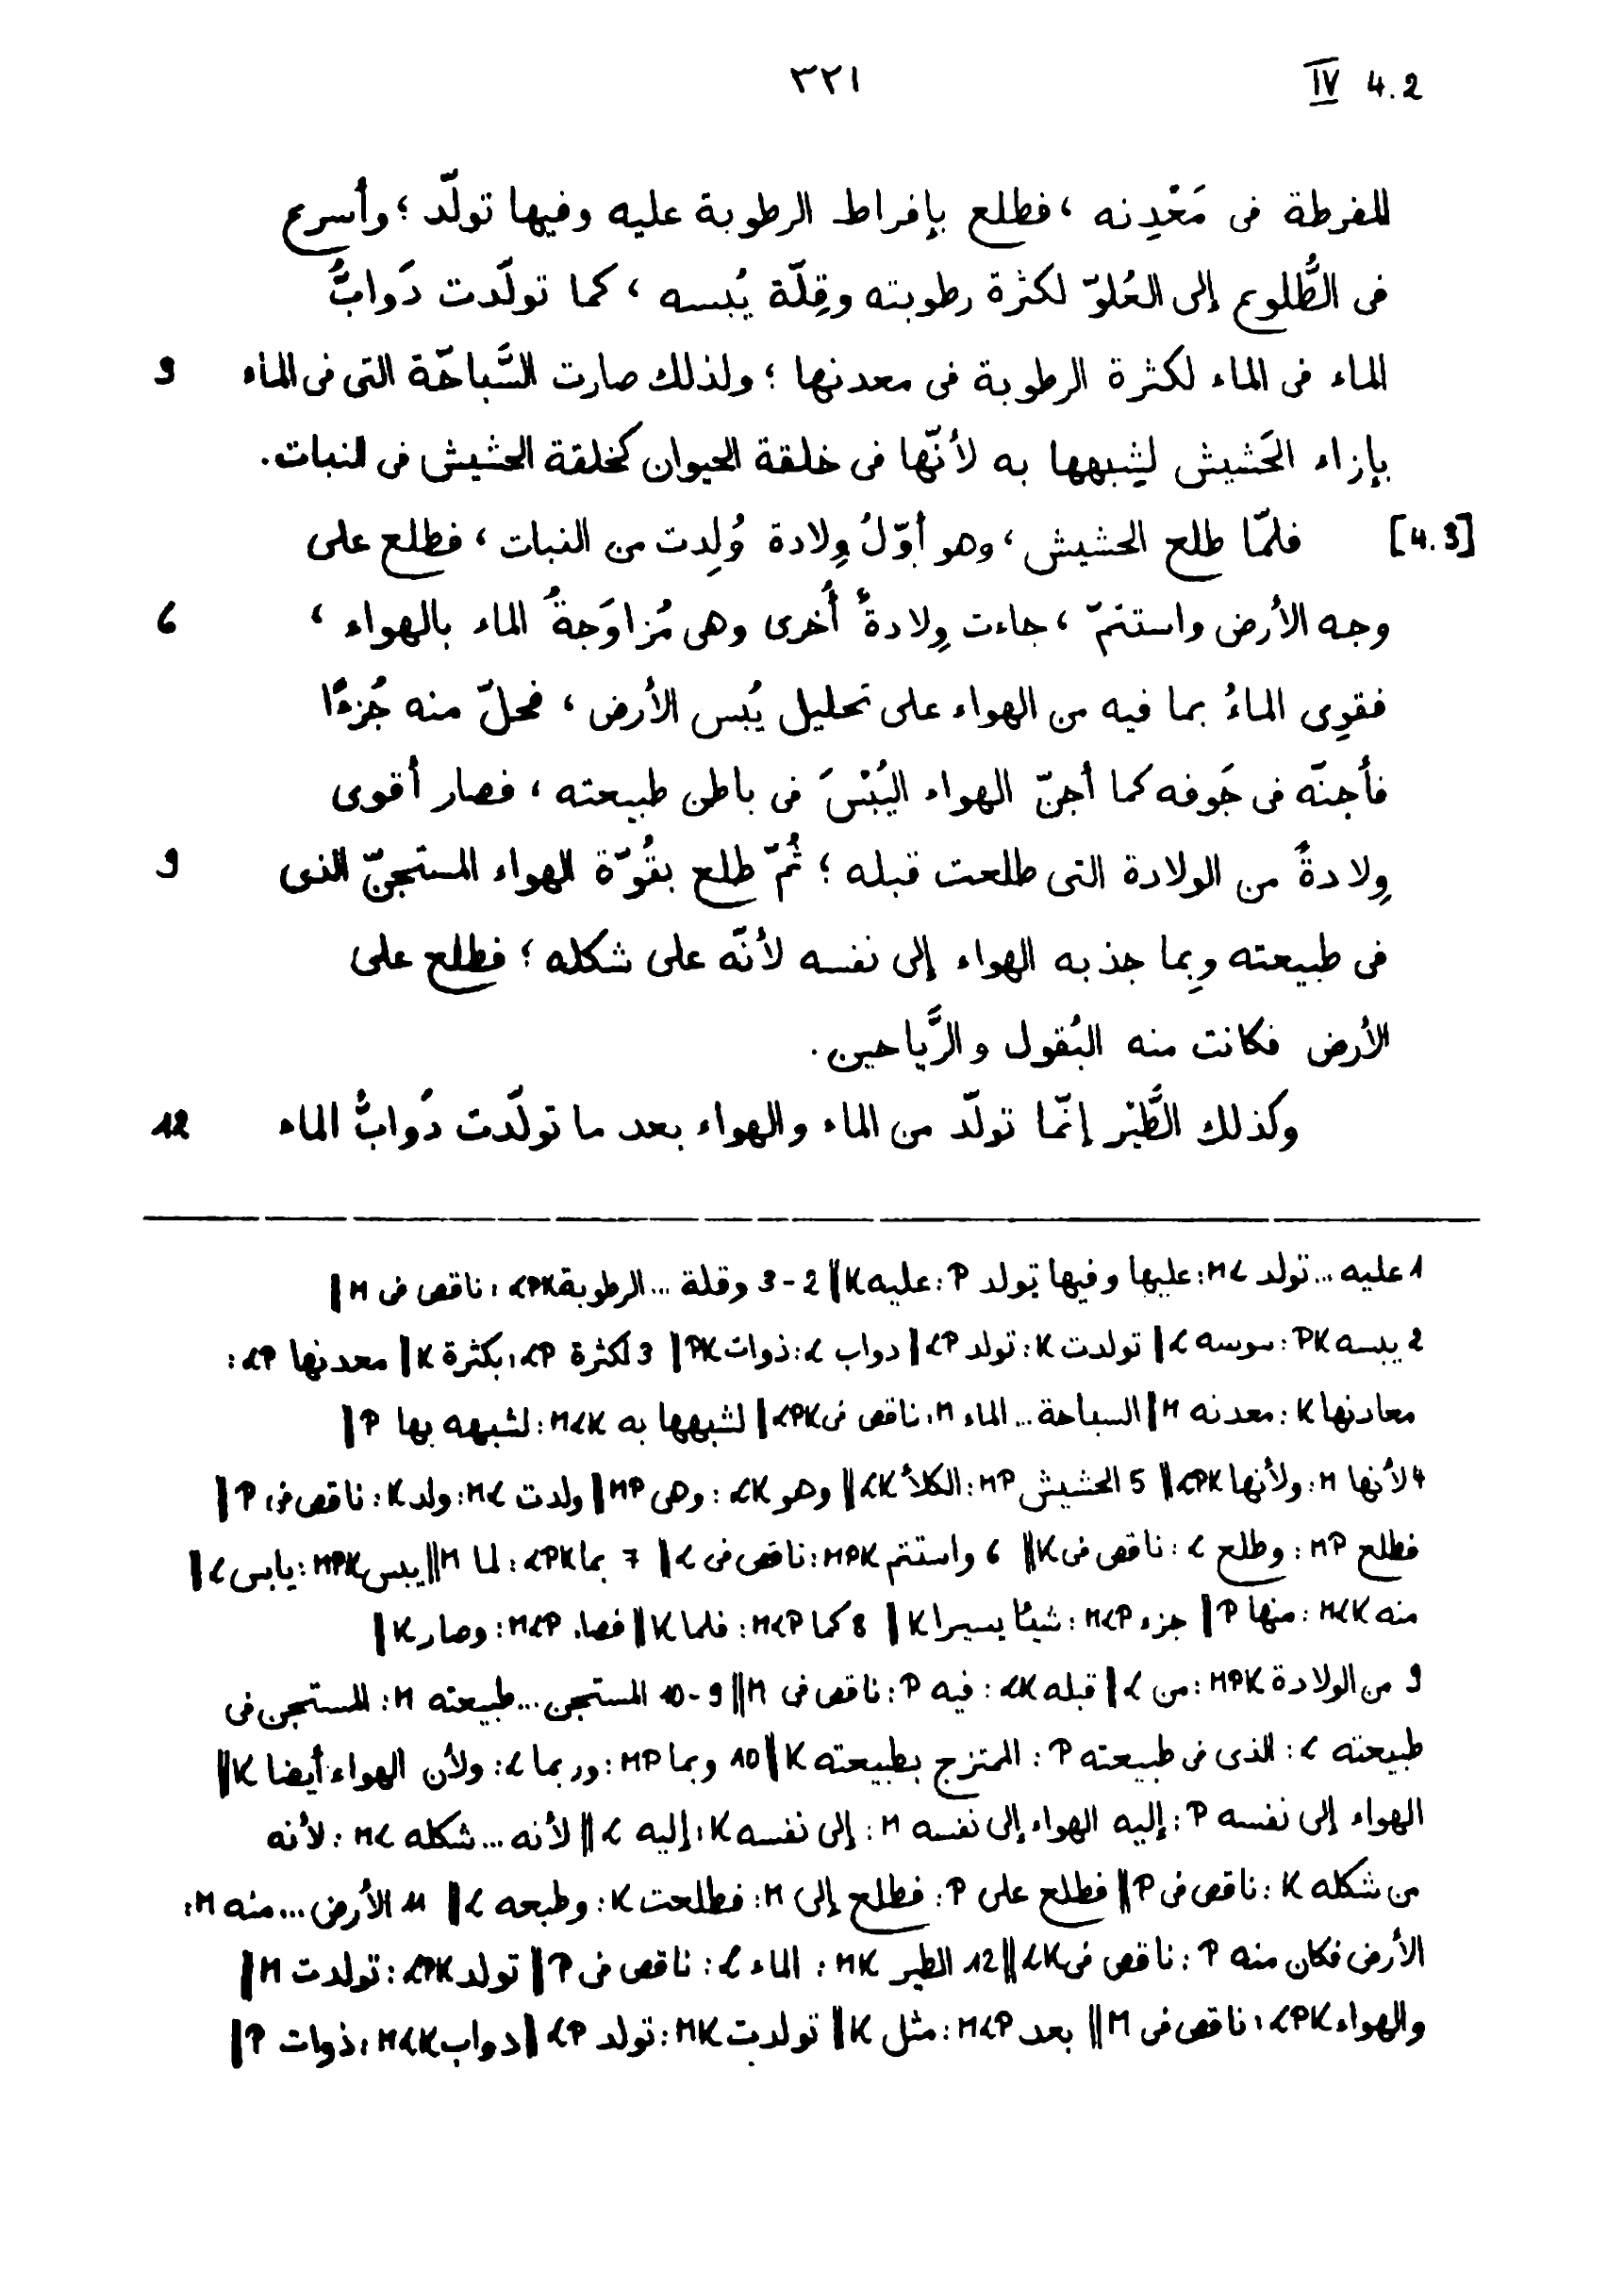 ٣٢١ IV 4.2
للفرطة فى مَعْدِنه ، فطلع بإفراط الرطوبة عليه وفيها تولّد ؛ وأسرع
فى الطُّلوع إلى العُلوّ لكثرة رطوبته وقِلّة يُبسه ، كما تولّدت دَوابُّ
الماء فى الماء لكثرة الرطوبة فى معدنها ؛ ولذلك صارت السَّباحّة التى فى الماء 3
بإزاء الحَشيش لشِبهها به لأنّها فى خلقة الحيوان كخلقة الحشيش فى النبات .
[4.3] فلمّا طلع الحشيش ، وهو أوّلُ وِلادة وُلِدت من النبات ، فطلع على
وجه الأرض واستتمّ ، جاءت وِلادةٌ أُخرى وهى مُزاوَجةُ الماء بالهواء ، 6
فقوِى الماءُ بما فيه من الهواء على تحليل يُبس الأرض ، فحلّ منه جُزءًا
فأجنّه فى جَوفه كما أجنّ الهواء اليُبْسَ فى باطن طبيعته ، فصار أقوى
وِلادةً من الولادة التى طلعت قبله ؛ ثُمّ طلع بقُوّة الهواء المستجنّ الذى 9
فى طبيعته وبِما جذبه الهواء إلى نفسه لأنّه على شكله ؛ فطلع على
الأرض فكانت منه البُقول والرَّياحين .
وكذلك الطَّيْر إنّما تولّد من الماء والهواء بعد ما تولّدت دَوابُّ الماء 12
1 عليه ... تولد ML : عليها وفيها تولد P : عليه K || 2-3 وقلة ... الرطوبة LPK : ناقص فى M |
2 يبسه PK : سوسه L | تولدت K : تولد LP | دواب L : ذوات PK | 3 لكثرة LP : بكثرة K | معدنها LP :
معادنها K : معدنه M | السباحة ... الماء M : ناقص فى LPK | لشبهها به MLK : لشبهه بها P |
4 لأنها M : ولأنها LPK || 5 الحشيش MP : الكلأ LK || وهو LK : وهى MP | ولدت ML : ولد K : ناقص فى P |
فطلع MP : وطلع L : ناقص فى K || 6 واستتم MPK : ناقص فى L | 7 بما LPK : لما M || يبس MPK : يابس L |
منه MLK : منها P | جزء MLP : شيئا يسيرا K | 8 كما MLP : فلما K || فصار MLP : وصار K |
9 من الولادة MPK : من L | قبله LK : فيه P : ناقص فى M || 9-10 المستجن ... طبيعته M : المستجن فى
طبيعته L : الذى فى طبيعته P : الممتزج بطبيعته K | 10 وبما MP : وربما L : ولأن الهواء أيضا K ||
الهواء إلى نفسه P : إليه الهواء إلى نفسه M : إلى نفسه K : إليه L || لأنه ... شكله ML : لأنه
من شكله K : ناقص فى P || فطلع على P : فطلع إلى M : فطلعت K : وطبعه L | 11 الأرض ... منه M :
الأرض فكان منه P : ناقص فى LK || 12 الطير MK : الماء L : ناقص فى P | تولد LPK : تولدت M |
والهواء LPK : ناقص فى M || بعد MLP : مثل K | تولدت MK : تولد LP | دواب MLK : ذوات P |